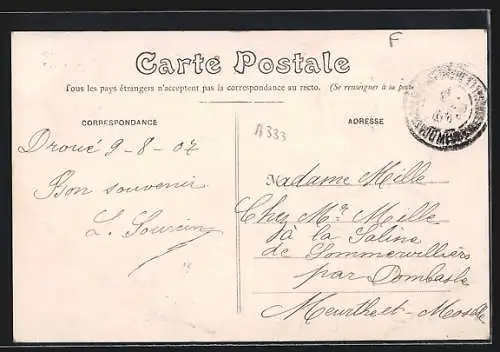 F
Carte Postale
Tous les pays étrangers n'acceptent pas la correspondance au recto. (Se renseigner à la poste
CORRESPONDANCE
ADRESSE
A333
Droué 9-8-07
Bon souvenir
Madame Mille
Chez Mr Mille
à la Saline
de Sommerwilliers
par Dombasle
Meurthe-et-Moselle